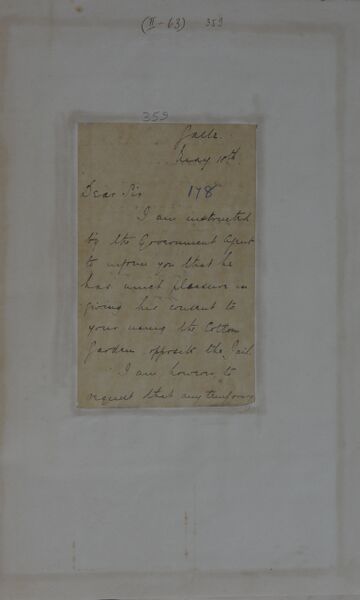 (II-63) 359
359
Galle.
May 10th
Dear Sir 178
I am instructed
by the Government Agent
to inform you that he
has much pleasure in
giving his consent to
your using the Cotton
Garden opposite the Jail.
I am however to
request that any temporary